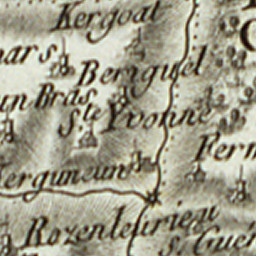 Kergoat
mars
Beriguel
un Bras
Ste Yvonne
Ferm
Kerguneun
Rozenleurieau
St. Guén